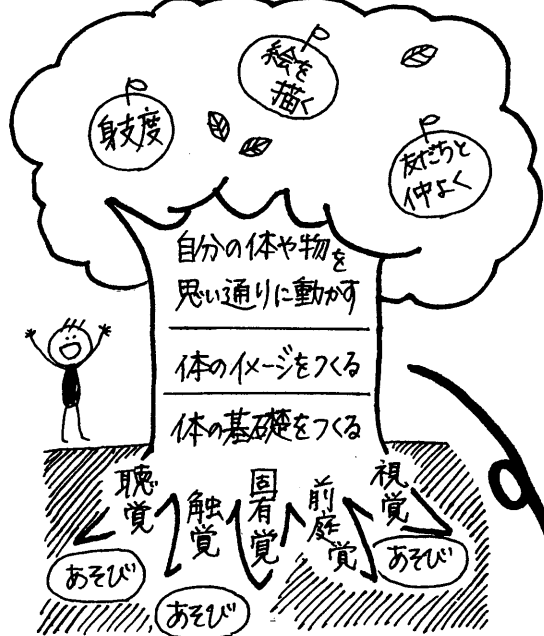 絵を
描く
身支度
友だちと
仲よく
自分の体や物を
思い通りに動かす
体のイメージをつくる
体の基礎をつくる
聴覚
触覚
固有覚
前庭覚
視覚
あそび
あそび
あそび